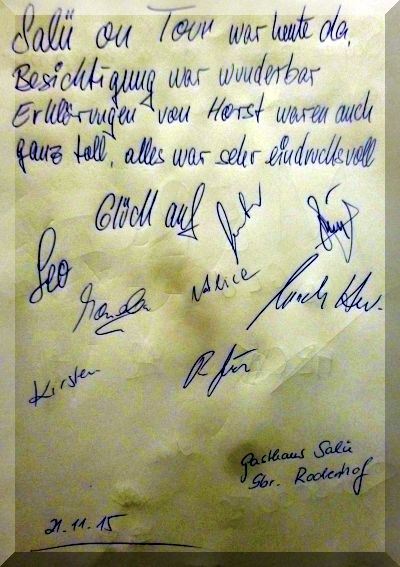 Salü on Tour war heute da.
Besichtigung war wunderbar
Erklärungen von Horst waren auch
ganz toll, alles war sehr eindrucksvoll
Glück auf
Leo
Alice
Kirsten
Gasthaus Salü
Sbr. Rodenhof
21.11.15